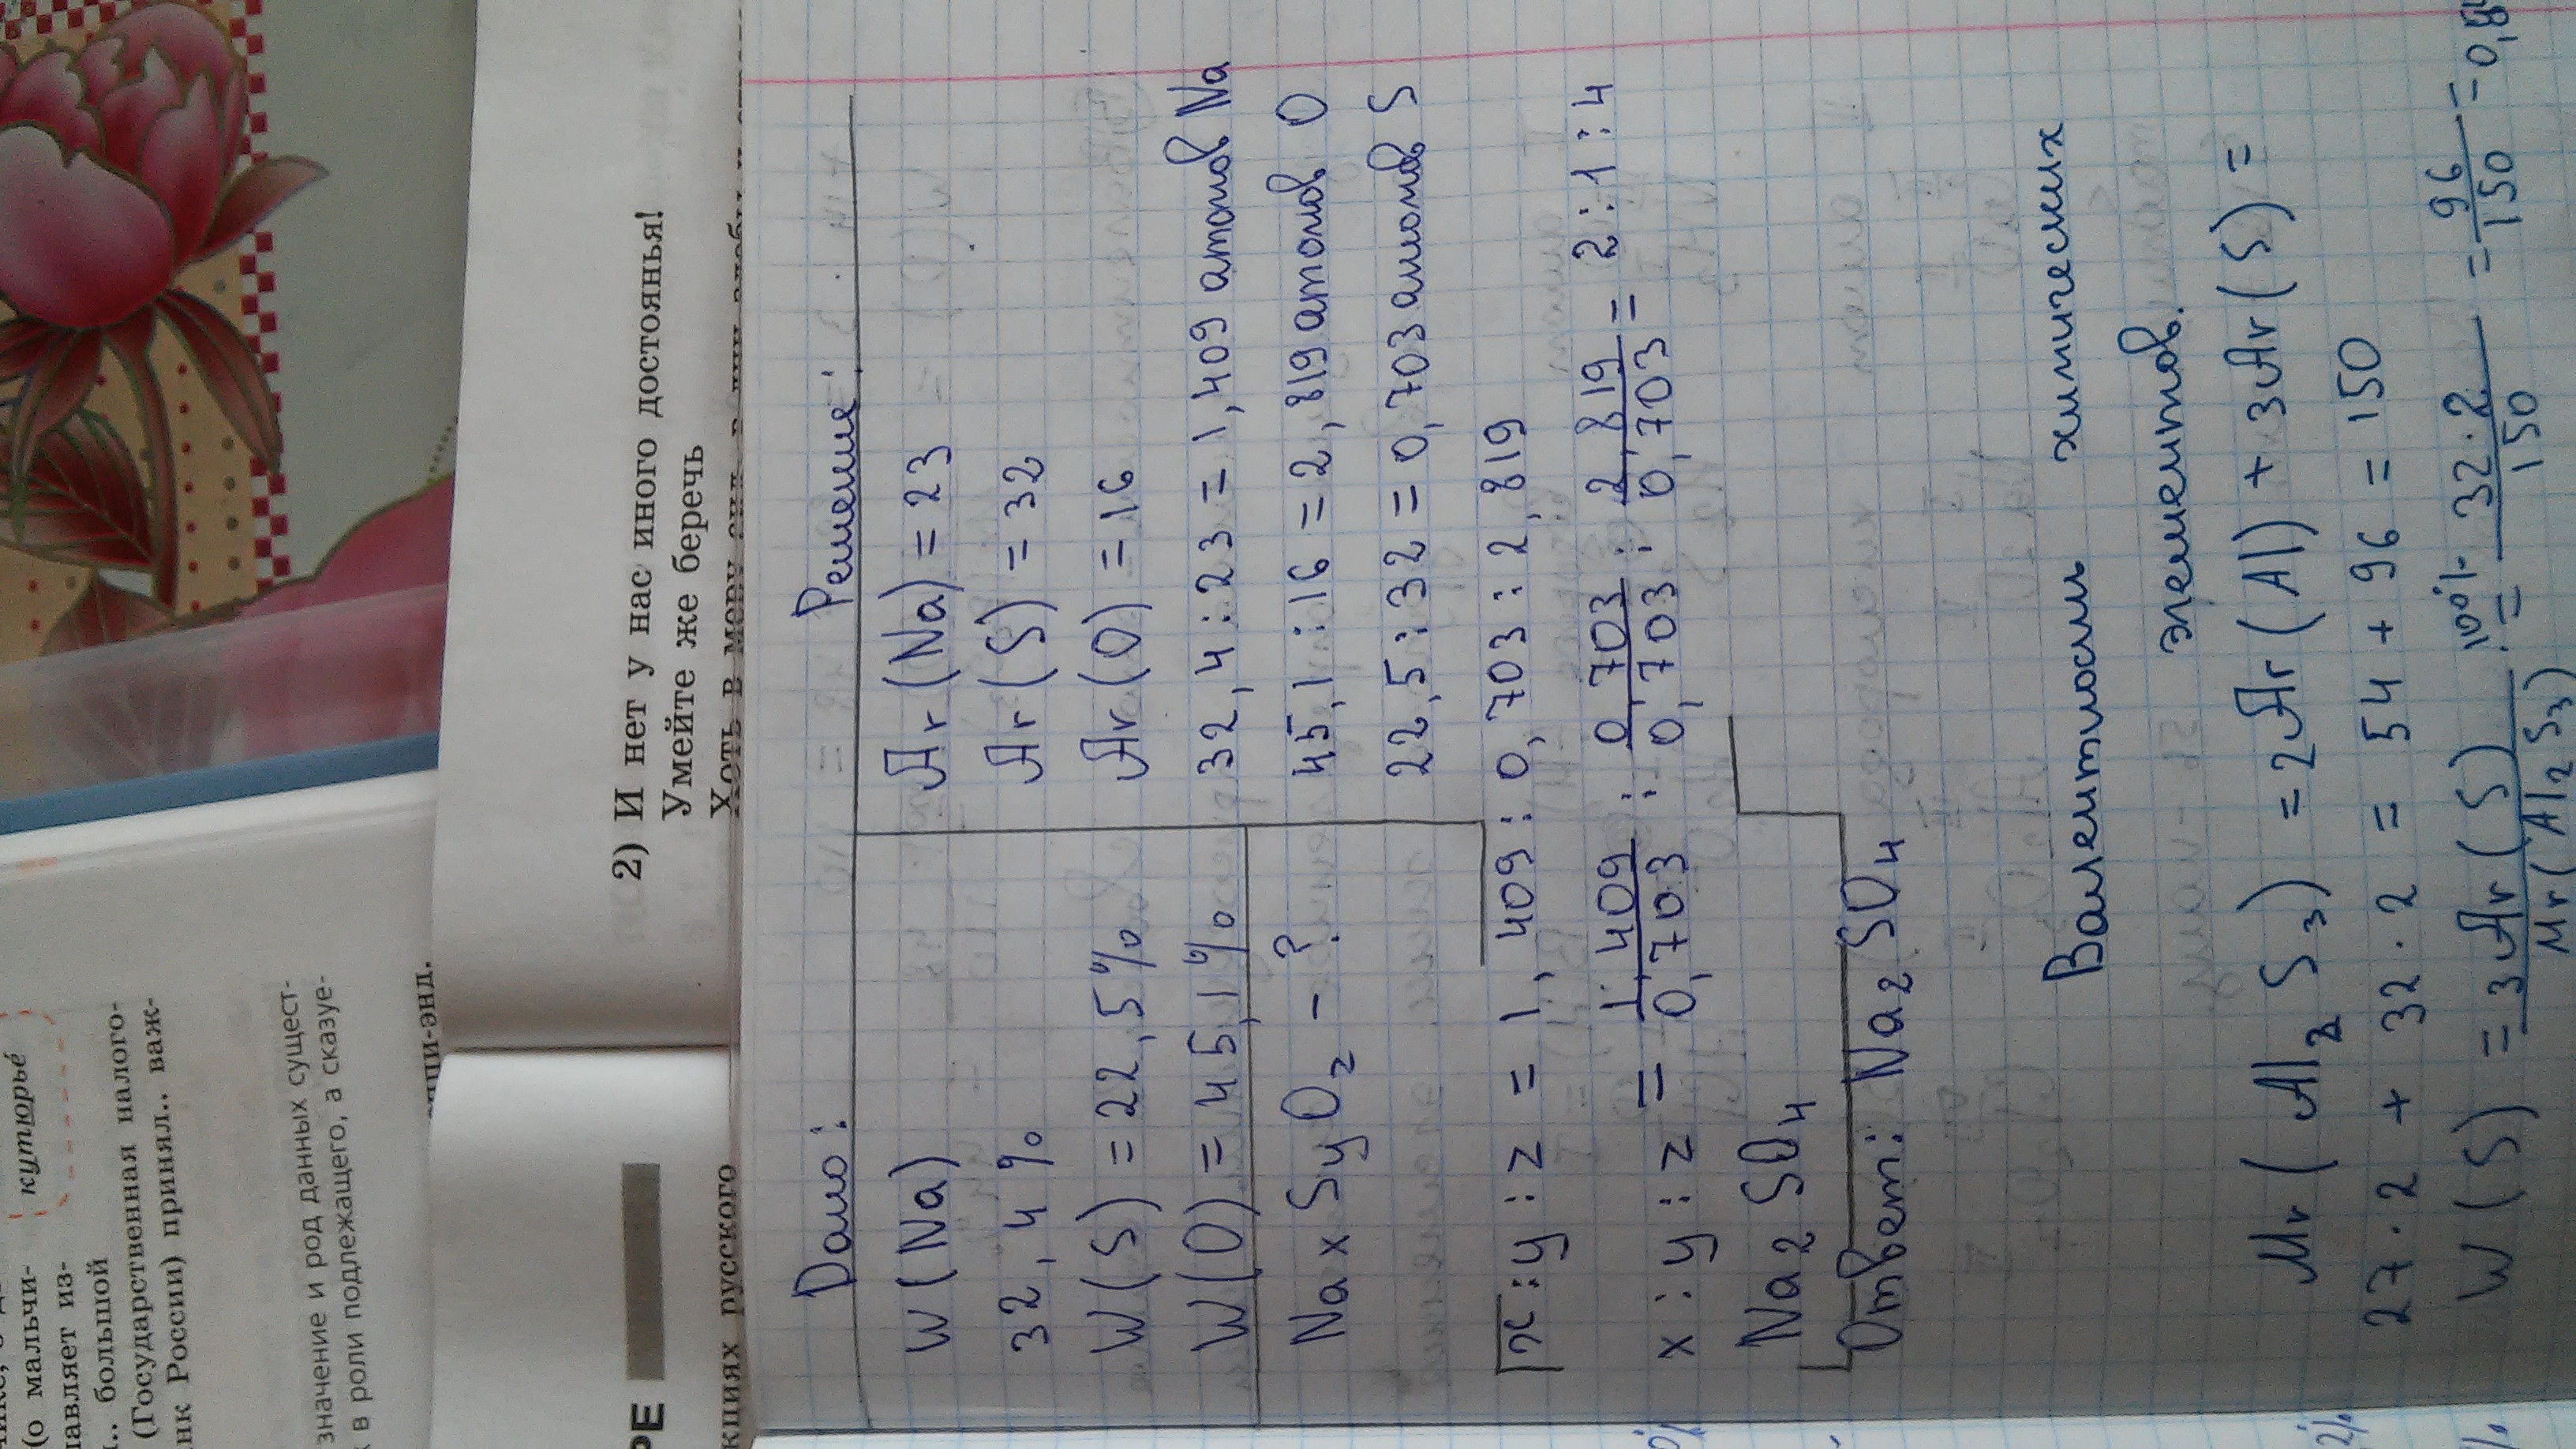 кутюрье
(о мальчи-
тавляет из-
большой
(Государственная налого-
нк России) принял.. важ-
значение и род данных сущест-
в роли подлежащего, а сказуе-
2) И нет у нас иного достоянья!
Умейте же беречь
Хоть в меру
РЕ
кциях русского
Дано:
W (Na)
32,4%
W (S) = 22,5%
W (O) = 45,1%
Na x Sy Oz - ?
Решение:
Ar (Na) = 23
Ar (S) = 32
Ar (O) = 16
32,4 : 23 = 1,409 атомов Na
45,1 : 16 = 2,819 атомов O
22,5 : 32 = 0,703 атомов S
x : y : z = 1,409 : 0,703 : 2,819
x : y : z = 1,409/0,703 : 0,703/0,703 : 2,819/0,703 = 2 : 1 : 4
Na2 SO4
Ответ: Na2 SO4
Валентность химических
элементов.
Mr (Al2 S3) = 2Ar (Al) + 3Ar (S) =
27·2 + 32·2 = 54 + 96 = 150
W (S) = 3Ar (S)/Mr (Al2S3) · 100% = 32·2/150 = 96/150 = 0,